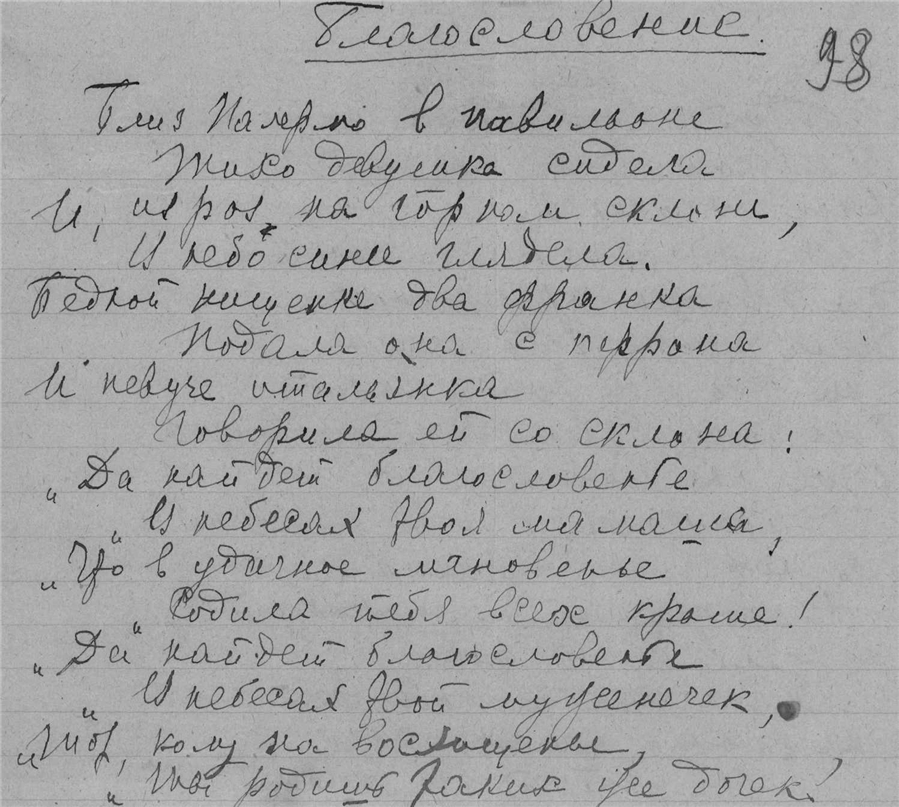 Благословение.
98
Близ Палермо в павильоне
Тихо девушка сидела
И, из роз на горном склоне,
В небо синее глядела.
Бедной нищенке два франка
Подала она с перрона
И певуче итальянка
Говорила ей со склона:
„Да найдет благословенье
„В небесах твоя мамаша,
„Что в удачное мгновенье
„Родила тебя всех краше!
„Да найдет благословенье
„В небесах твой муженечек,
„Тот, кому на восхищенье,
„Ты родишь таких же дочек!